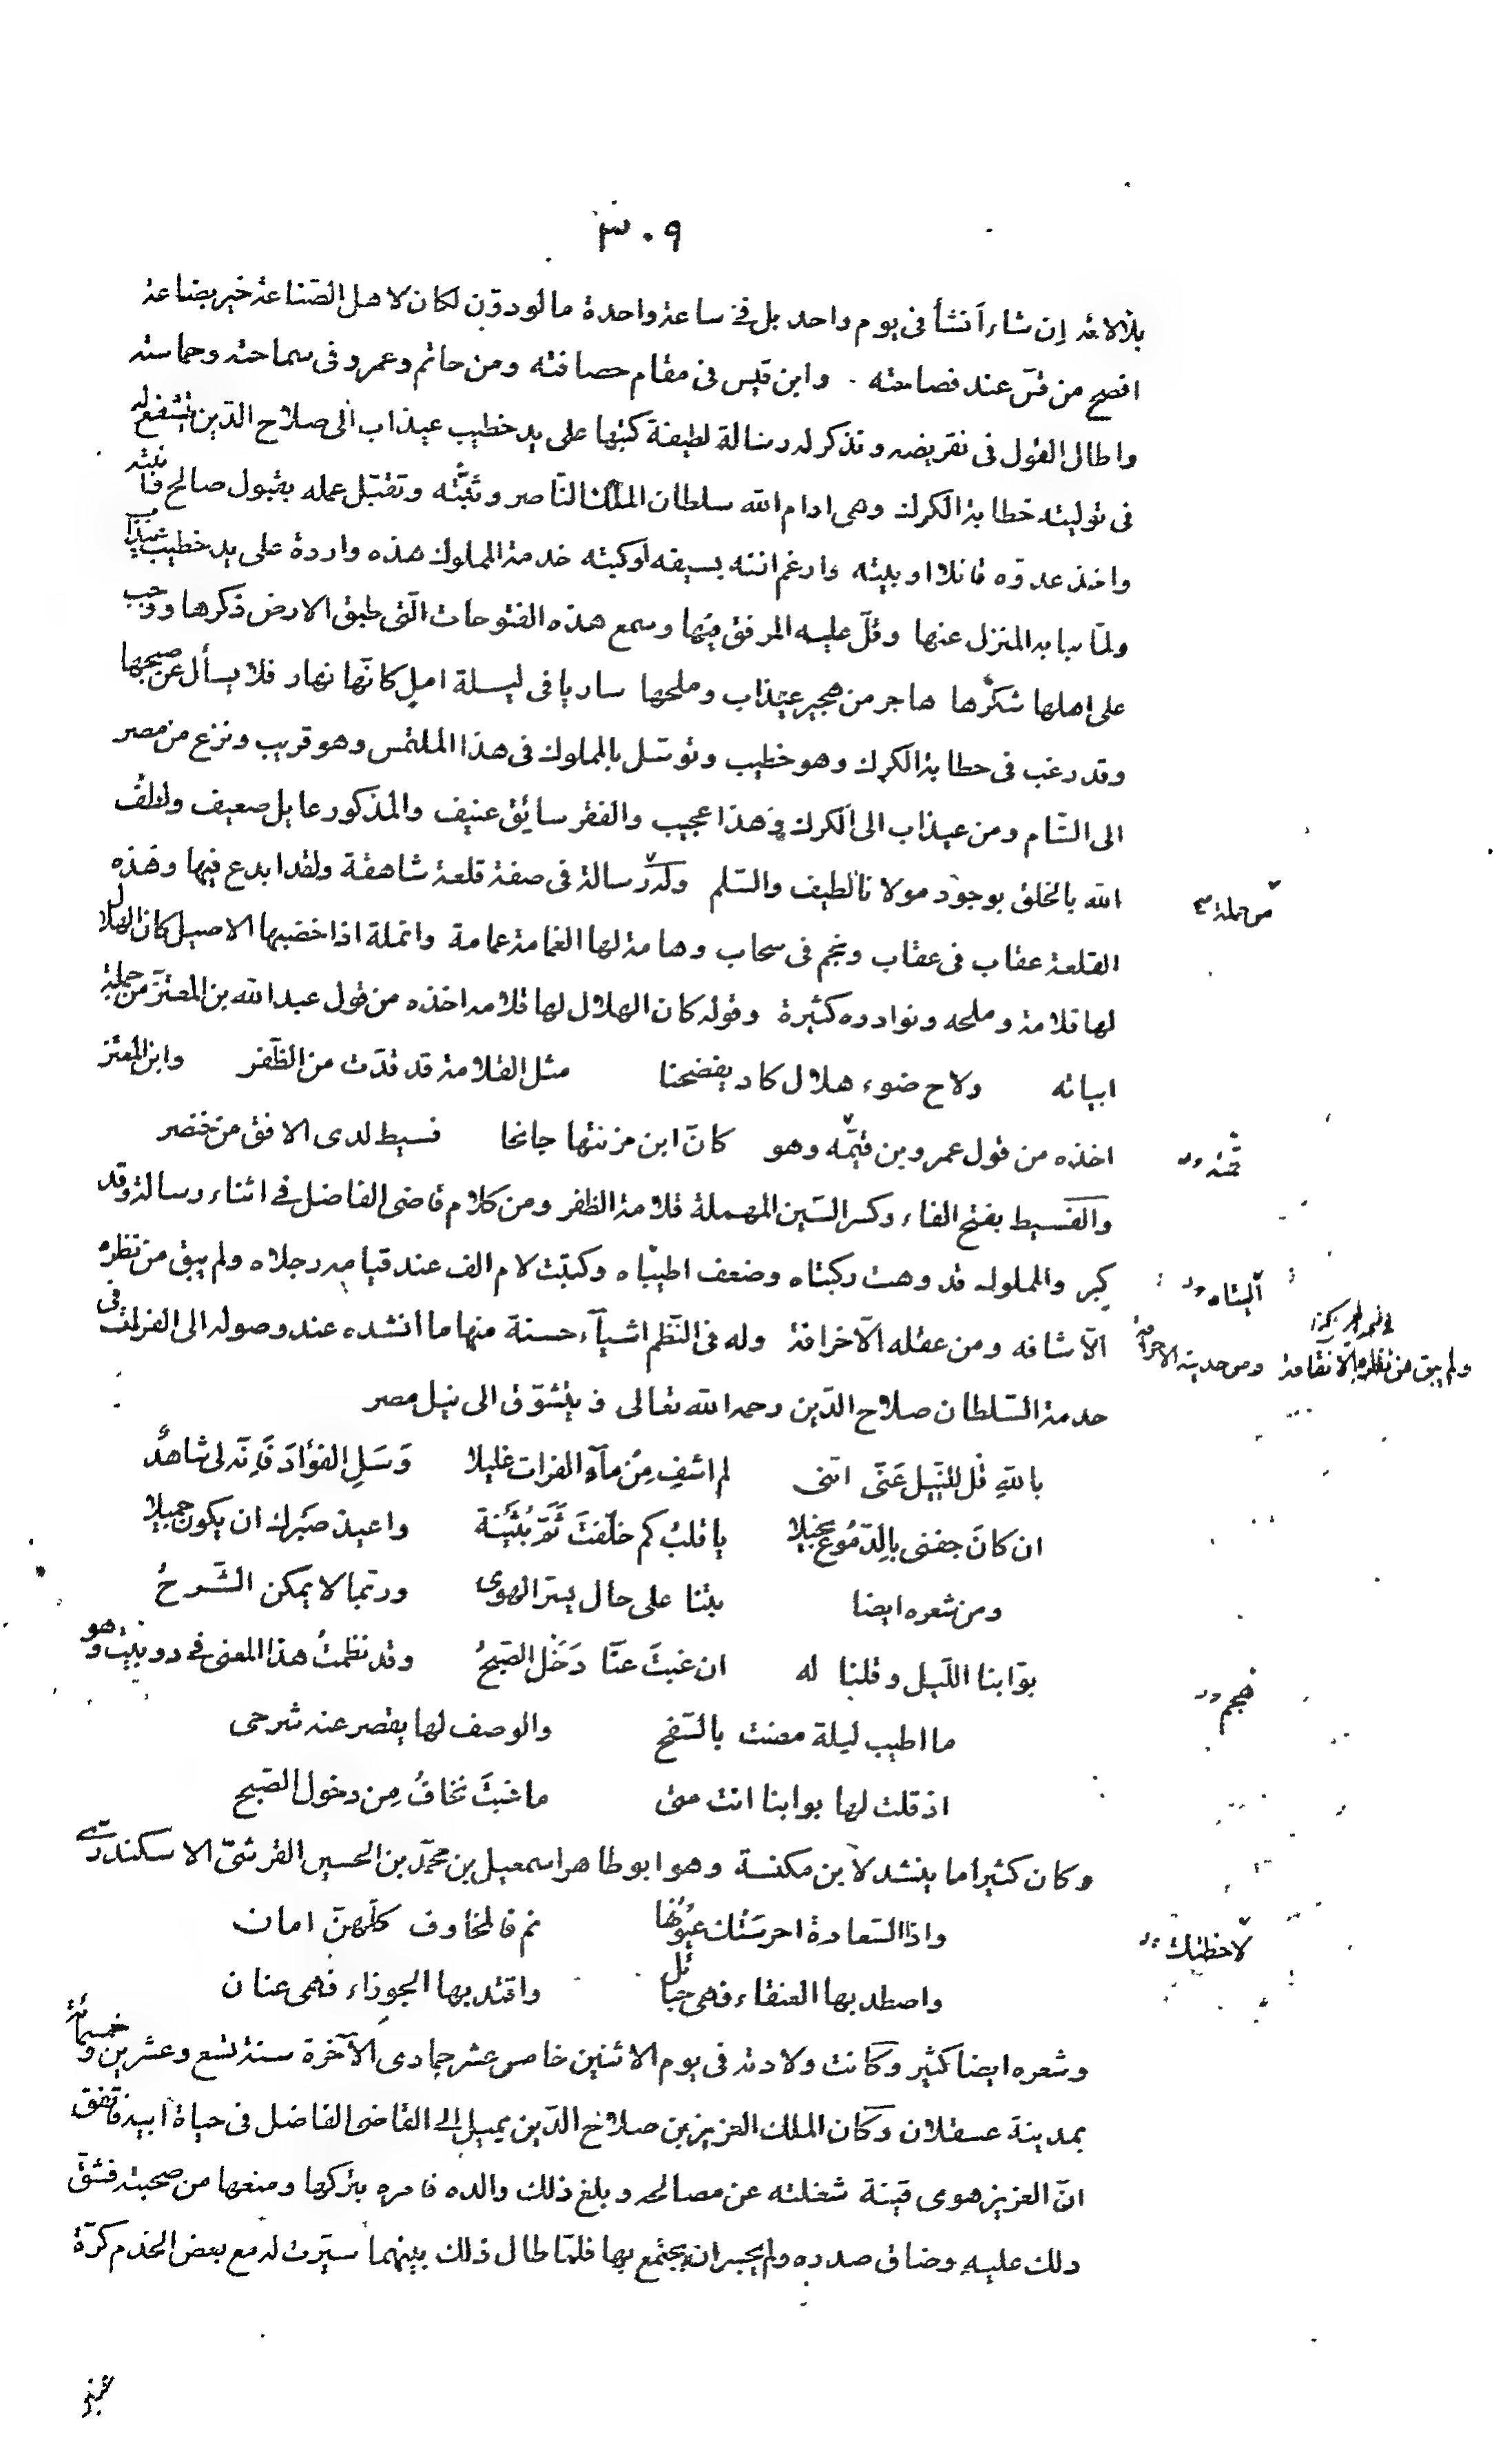 ٣٠٩
بذلاغه إن شاء أنشأ فى يوم واحد بل فى ساعة واحدة ما لو دوّن لكان لاهل الصّناعة خير بضاعة
افصح من قسّ عند فصاحته وابن قيس فى مقام حصافته ومن حاتم وعمرو فى سماحته وحماسته
واطال القول فى تقريضه ونذكر له رسالة لطيفة كتبها على يد خطيب عيذاب الى صلاح الدّين يتشفع له
فى توليته خطابة الكرك وهى ادام الله سلطان الملك النّاصر وثبّته وتقبّل عمله بقبول صالح فانبته
واخذ عدوّه قائلا او بيته وارغم انفه بسيفه او كبته خدمة المملوك هذه واردة على يد خطيب عيذاب
ولمّا نبا به المنزل عنها وقلّ عليه المرفق فيها وسمع هذه الفتوحات الّتى طبق الارض ذكرها ووجب
على اهلها شكرها هاجر من هجير عيذاب وملحها ساريا فى ليلة امل كانّها نهار فلا يسأل عن صبحها
وقد رغب فى خطابة الكرك وهو خطيب وتوسّل بالمملوك فى هذا الملتمس وهو قريب ونزع من مصر
الى الشّام ومن عيذاب الى الكرك وهذا عجيب والفقر سائق عنيف والمذكور عايل ضعيف ولطف
الله بالخلق بوجود مولانا لطيف والسّلم وله رسالة فى صفة قلعة شاهقة ولقد ابدع فيها وهذه
من جملة صح
القلعة عقاب فى عقاب ونجم فى سحاب وهامة لها الغمامة عمامة وانملة اذا خضبها الاصيل كان الهلال
لها قلامة وملحه ونوادره كثيرة وقوله كان الهلال لها قلامه اخذه من قول عبد الله بن المعتزّ من جملة
ابياته ولاح ضوء هلال كاد يفضحنا مثل القلامة قد قدّت من الظّفر وابن المعتز
اخذه من قول عمرو بن قيمّه وهو كانّ ابن مزنتها جانحا فسيط لدى الافق من خنصر
قمئة
والفسيط بفتح الفاء وكسر السّين المهملة قلامة الظفر ومن كلام قاضى الفاضل فى اثناء رسالة وقد
كبر والمملوك قد وهت ركبتاه وضعف اطيباه وكتبت لام الف عند قيامه رجلاه ولم يبق من نظره
أليتاه
الّا شافه ومن عقله الّا خرافة وله فى النّظم اشيآء حسنة منها ما انشده عند وصوله الى الفرات فى
ولم يبق من نظره الّا
خدمة السّلطان صلاح الدّين رحمه الله تعالى فى يتشوّق الى نيل مصر
باللهِ قُل للنّيل عَنّى انّنى لم اشفِ مِنْ مآءِ الفرات غليلا وَسَلِ الفؤادَ فَإنّه لى شاهدٌ
ان كانَ جفنى بالدّمُوع بخيلا يا قلبُ كم خلّفتَ ثَمَّ بُثَيْنَة واعيذ صَبَرك ان يكون جميلا
ومن شعره ايضا بتنا على حال يسرّ الهوى وربّما لا يمكن الشّرحُ
بوّابنا اللّيل وقلنا له ان غبتَ عنّا دَخَل الصّبحُ وقد نظمتُ هذا المعنى فى دوبيت وهو
هجم
ما اطيب ليلة مضت بالسّفح والوصف لها يقصر عنه شرحى
اذ قلت لها بوابنا انت متى ما غبتَ نخافُ مِن دخول الصّبح
وكان كثيرا ما ينشد لابن مكنسة وهو ابو طاهر اسمعيل بن محمّد بن الحسين القرشىّ الاسكندرىّ
واذا السّعادة احرسَتك عيونُها نم فالمخاوف كلّهنّ امان
لاحظتك
واصطد بها العنقاء فهى حبائل واقتد بها الجوزاء فهى عنان
وشعره ايضا كثير وكانت ولادته فى يوم الاثنين خامس عشر جمادى الآخرة سنة تسع وعشرين وخمسمائة
بمدينة عسقلان وكان الملك العزيز بن صلاح الدّين يميل الى القاضى الفاضل فى حياة ابيه فاتّفق
انّ العزيز هوى قينة شغلته عن مصالحه وبلغ ذلك والده فامره بتركها ومنعها من صحبته فشقّ
ذلك عليه وضاق صدره ولم يجسر ان يجتمع بها فلمّا طال ذلك بينهما سيّرت له مع بعض الخدم كرّة
عنبر